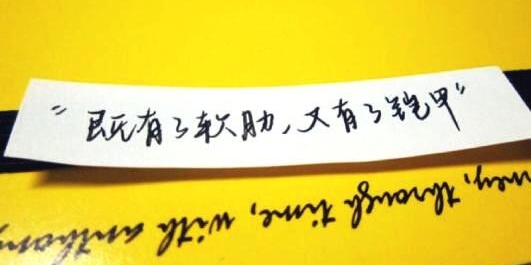 “既有了软肋，又有了铠甲”
through time, with